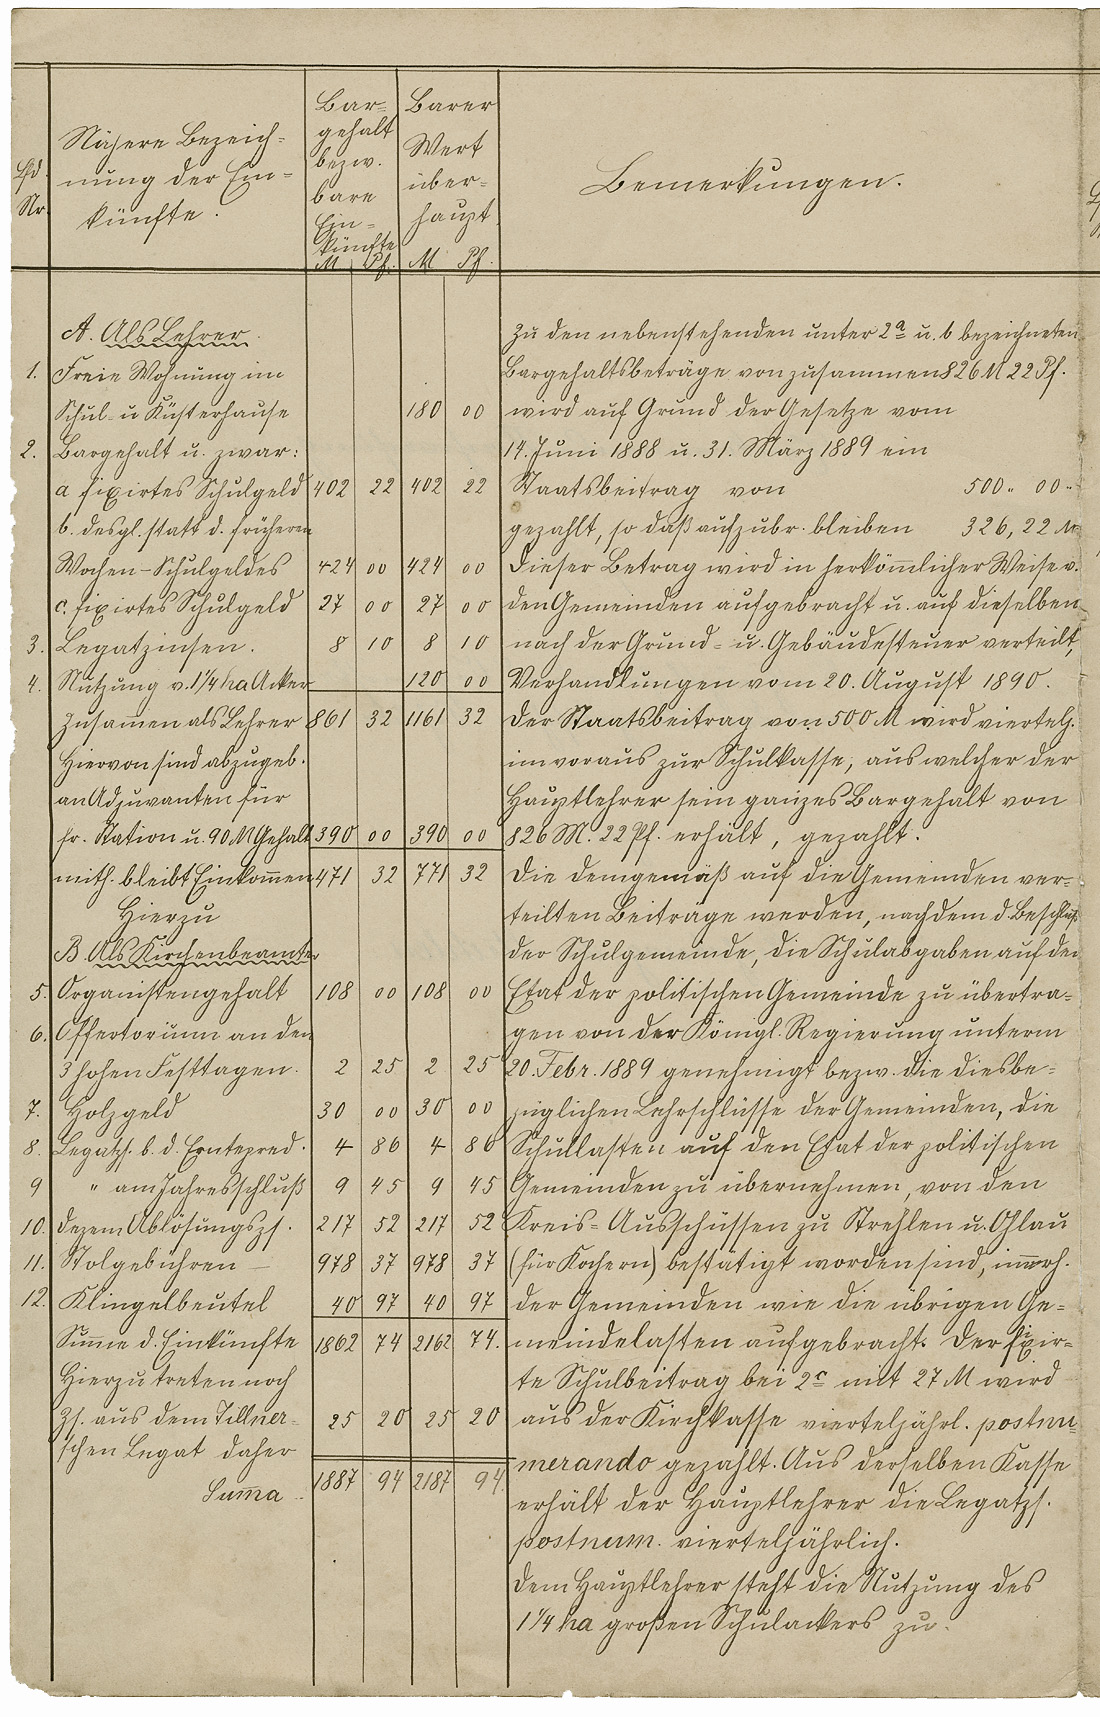 Lfd. Nr.
Nähere Bezeich-
nung der Ein-
künfte.
Bar-
gehalt
bezw.
bare
Ein-
künfte
M Pf.
Barer
Wert
über-
haupt
M Pf.
Bemerkungen.
A. Als Lehrer.
1. Freie Wohnung im
Schul- u Küsterhause 180 00
2. Bargehalt u. zwar:
a fixirtes Schulgeld 402 22 402 22
b. desgl. statt d. früheren
Wochen-Schulgeldes 424 00 424 00
c. fixirtes Schulgeld 27 00 27 00
3. Legatzinsen. 8 10 8 10
4. Nutzung v. 1 1/4 ha Acker 120 00
Zusamen als Lehrer 861 32 1161 32
Hiervon sind abzugeb.
an Adjuvanten für
fr. Station u. 90 M Gehalt 390 00 390 00
mith. bleibt Einkom̄en 471 32 771 32
Hierzu
B Als Kirchenbeamter
5. Organistengehalt 108 00 108 00
6. Offertorium an den
3 hohen Festtagen. 2 25 2 25
7. Holzgeld 30 00 30 00
8. Legatzs. b. d. Erntepred. 4 86 4 86
9 " am Jahresschluß 9 45 9 45
10. Dezem Ablösungszs. 217 52 217 52
11. Stolgebühren — 978 37 978 37
12. Klingelbeutel 40 97 40 97
Sum̄e d. Einkünfte 1862 74 2162 74.
Hierzu treten noch
Zs. aus dem Tillner- 25 20 25 20
schen Legat daher
Suma 1887 94 2187 94.
Zu den nebenstehenden unter 2a u. b bezeichneten
Bargehaltsbeträge von zusammen 826 M 22 Pf.
wird auf Grund der Gesetze vom
14. Juni 1888 u. 31. März 1889 ein
Staatsbeitrag von 500 " 00 "
gezahlt, so daß aufzubr. bleiben 326, 22 M
Dieser Betrag wird in herköm̄licher Weise v.
den Gemeinden aufgebracht u. auf dieselben
nach der Grund- u. Gebäudesteuer verteilt,
Verhandlungen vom 20. August 1890.
Der Staatsbeitrag von 500 M wird viertelj.
im voraus zur Schulkasse, aus welcher der
Hauptlehrer sein ganzes Bargehalt von
826 M. 22 Pf. erhält, gezahlt.
Die demgemäß auf die Gemeinden ver-
teilten Beiträge werden, nachdem d. Beschluß
der Schulgemeinde, die Schulabgaben auf den
Etat der politischen Gemeinde zu übertra-
gen von der Königl. Regierung unterm
20. Febr. 1889 genehmigt bezw. die diesbe-
züglichen Beschlüsse der Gemeinden, die
Schullasten auf den Etat der politischen
Gemeinden zu übernehmen, von den
Kreis-Ausschüssen zu Strehlen u. Ohlau
(für Kochern) bestätigt worden sind, innerh.
der Gemeinden wie die übrigen Ge-
meindelasten aufgebracht. Der fixir-
te Schulbeitrag bei 2c mit 27 M wird
aus der Kirchkasse vierteljährl. postnu-
merando gezahlt. Aus derselben Kasse
erhält der Hauptlehrer die Legatzs.
postnum. vierteljährlich.
Dem Hauptlehrer steht die Nutzung des
1 1/4 ha großen Schulackers zu.